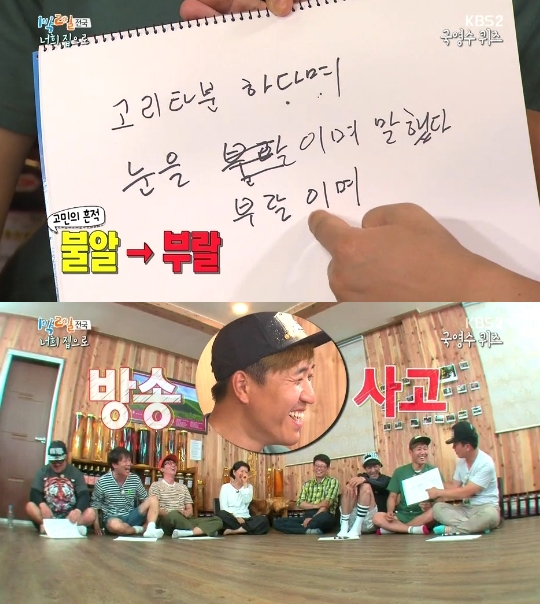 1박2일 전국
너희 집으로
KBS2
국영수 퀴즈
고리타분 하다며
눈을 불알이며 말했다
부랄이며
고민의 흔적
불알 → 부랄
1박2일 전국
너희 집으로
KBS2
국영수 퀴즈
방송 사고